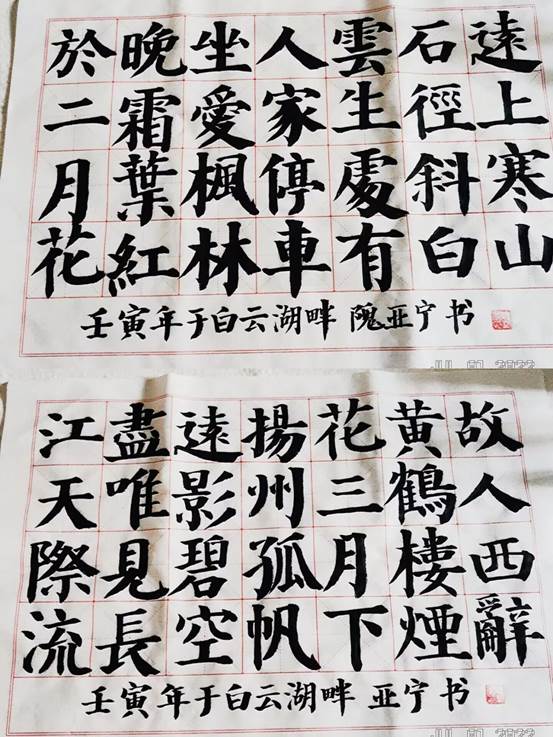 遠上寒山
石徑斜白
雲生處有
人家停車
坐愛楓林
晚霜葉紅
於二月花
壬寅年于白云湖畔 隗亚宁书
故人西辭
黄鶴樓煙
花三月下
揚州孤帆
遠影碧空
盡唯見長
江天際流
壬寅年于白云湖畔 亚宁书